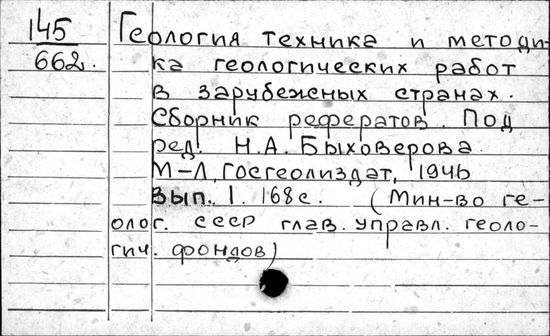 145 Геология техника и методи-
662. ка геологических работ
в зарубежных странах.
Сборник рефератов. Под
ред. Н.А. Быховерова.
М-Л, Госгеолиздат, 1946
Вып. I. 168с. (Мин-во ге-
олог. СССР глав. управл. геоло-
гич. фондов)